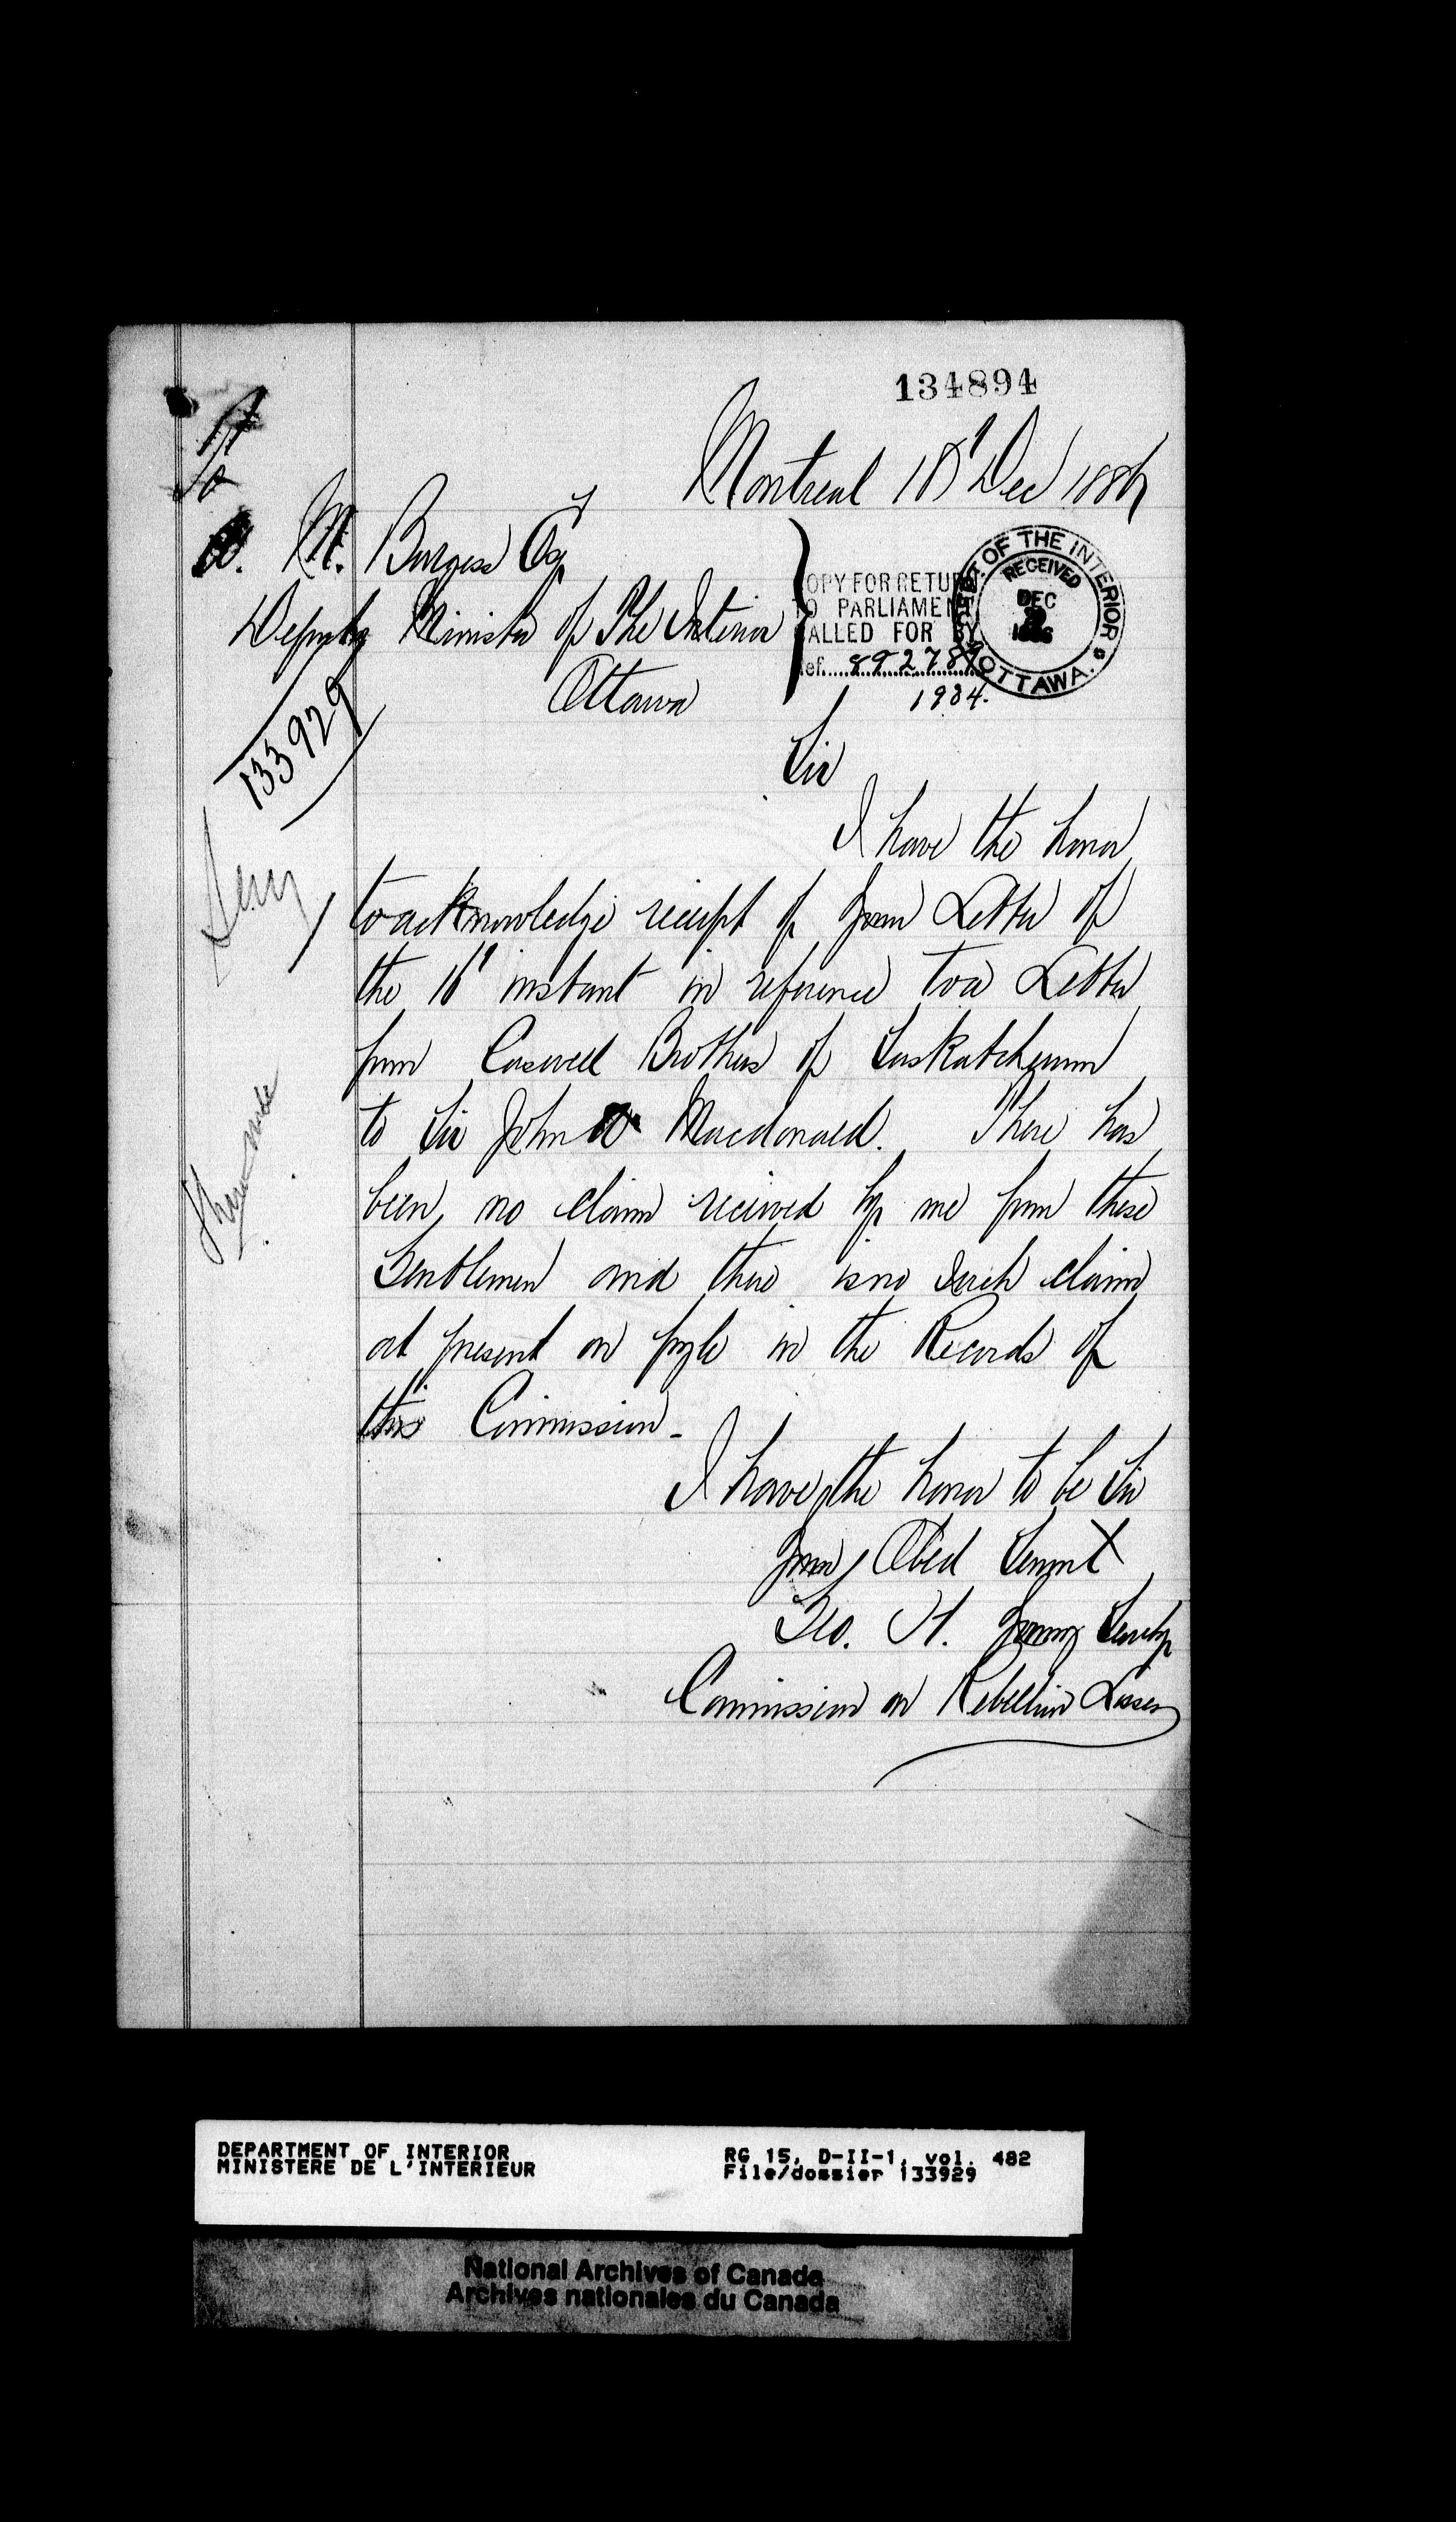 134894
Montreal 18' Dec 1886
A. M. Burgess Esq
Deputy Minister of The Interior
Ottawa
COPY FOR RETURN
TO PARLIAMENT
CALLED FOR BY
Ref. 892789
1984.
DEPT. OF THE INTERIOR
RECEIVED
DEC
1886
OTTAWA.
133929
Sir
I have the honor
to acknowledge receipt of your Letter of
the 16' instant in reference to a Letter
from Caswell Brothers of Saskatchewan
to Sir John A Macdonald. There has
been no claim received by me from these
Gentlemen and there is no such claim
at present on fyle in the Records of
this Commission -
I have the honor to be Sir
Your Obed Servnt
Geo. H. Young Secrty
Commission on Rebellion Losses
DEPARTMENT OF INTERIOR
MINISTERE DE L'INTERIEUR
RG 15, D-II-1, vol. 482
File/dossier 133929
National Archives of Canada
Archives nationales du Canada